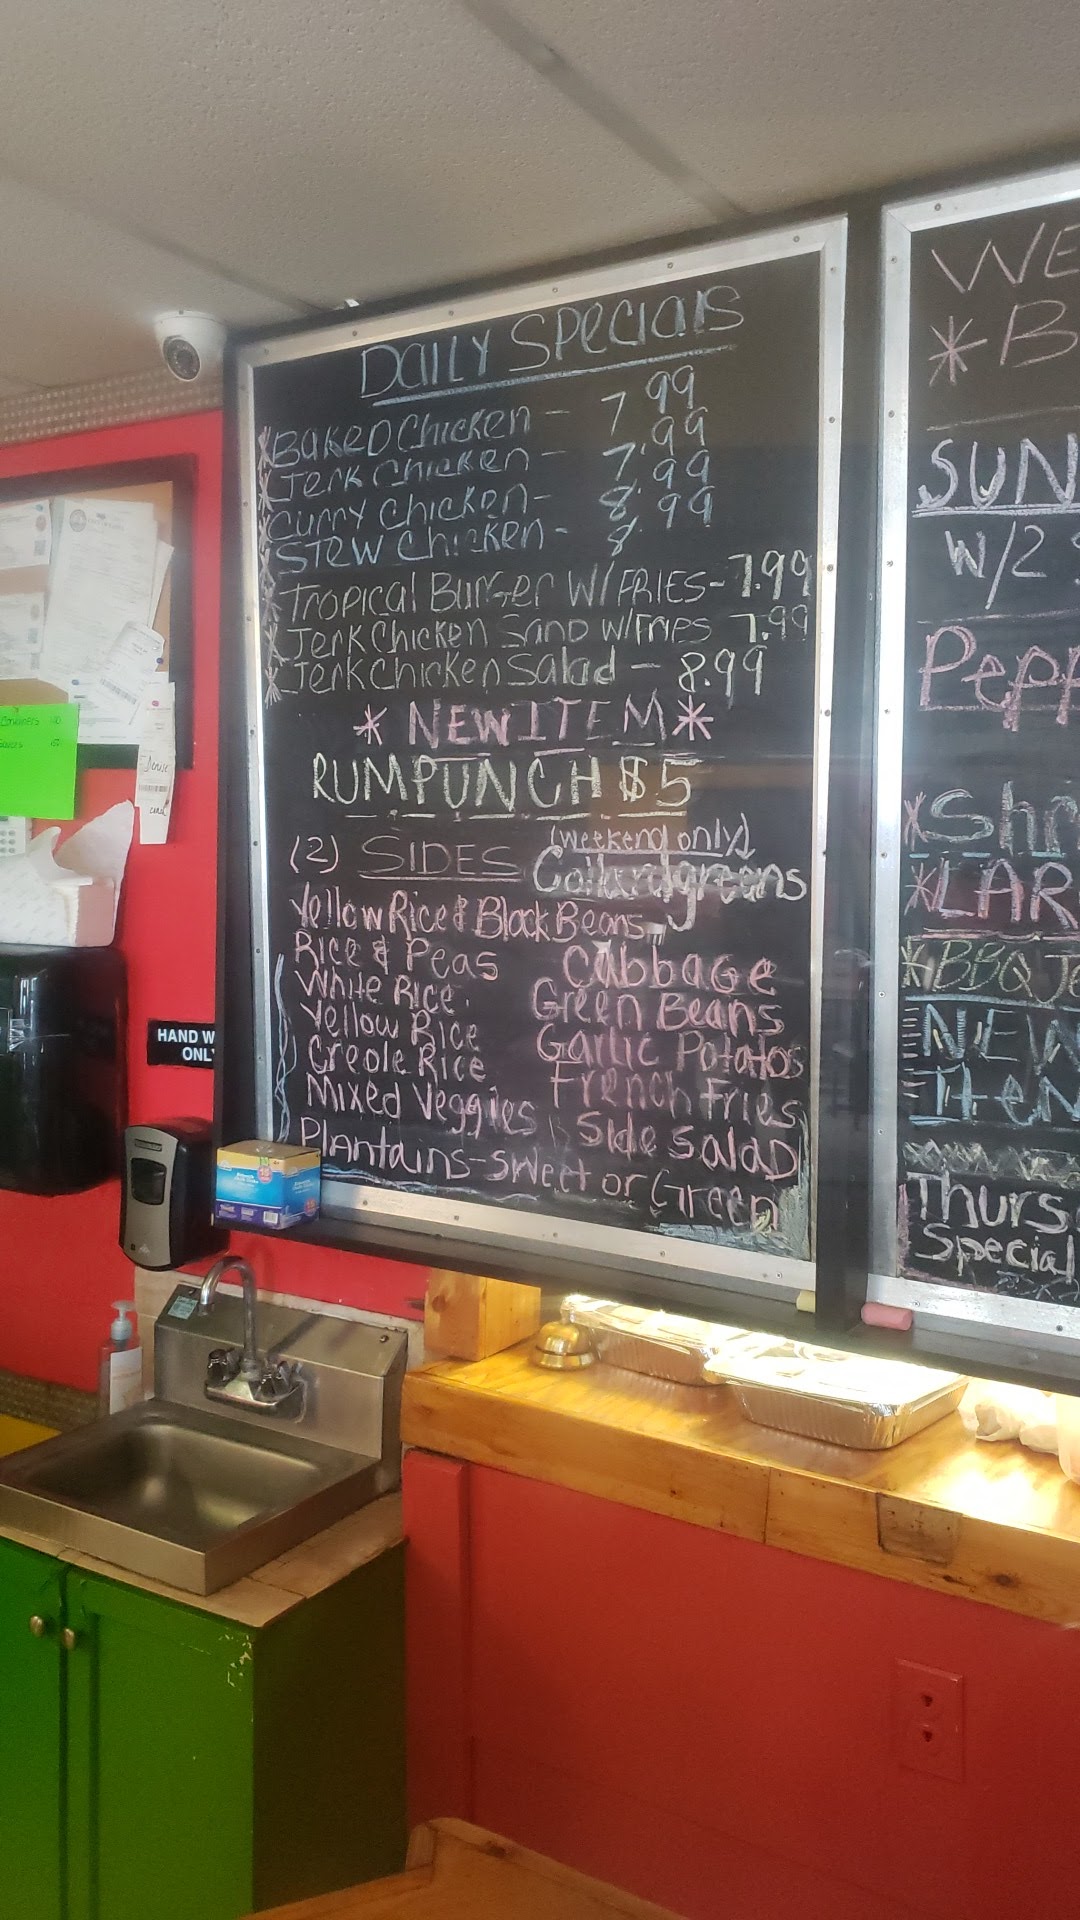 DAILY SPECIALS
*BAKED Chicken - 7.99
*Jerk Chicken - 7.99
*Curry Chicken - 8.99
*STEW Chicken - 8.99
*Tropical Burger W/FRIES - 7.99
*Jerk Chicken Sand w/Fries 7.99
*Jerk Chicken Salad - 8.99
* NEW ITEM *
RUM PUNCH $5
(2) SIDES
(weekend only)
Collardgreens
Yellow Rice & Black Beans
Rice & Peas
White Rice
Yellow Rice
Creole Rice
Mixed Veggies
Cabbage
Green Beans
Garlic Potatos
French Fries
Side Salad
Plantains - Sweet or Green
WE
*B
SUN
W/2
Pepp
*Shr
*LAR
*BBQ Je
NEW
Item
Thurs
Special
HAND W
ONLY